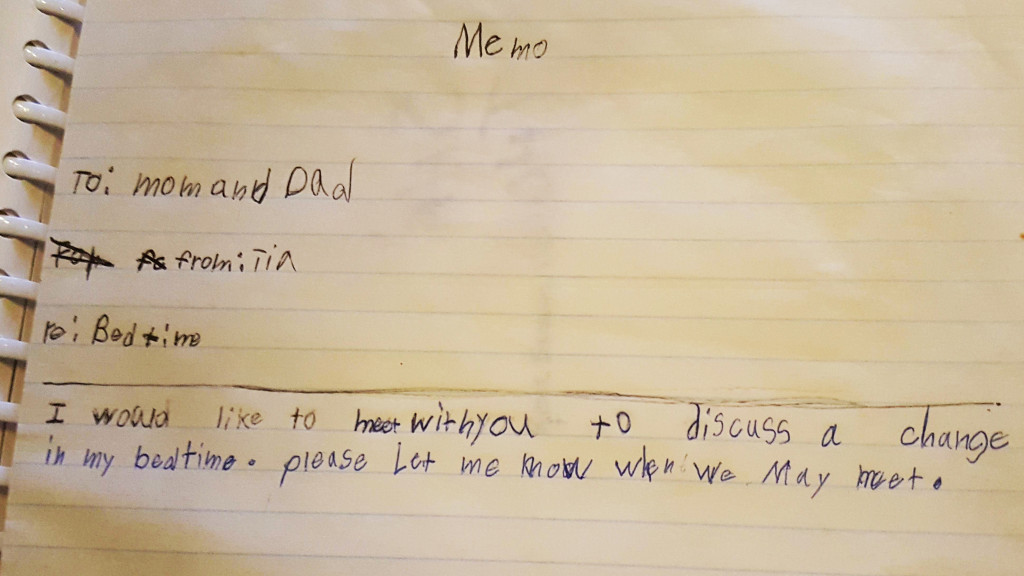 Memo
To: mom and Dad
from: Tia
re: Bedtime
I would like to meet with you to discuss a change
in my bedtime. please Let me know when we May meet.